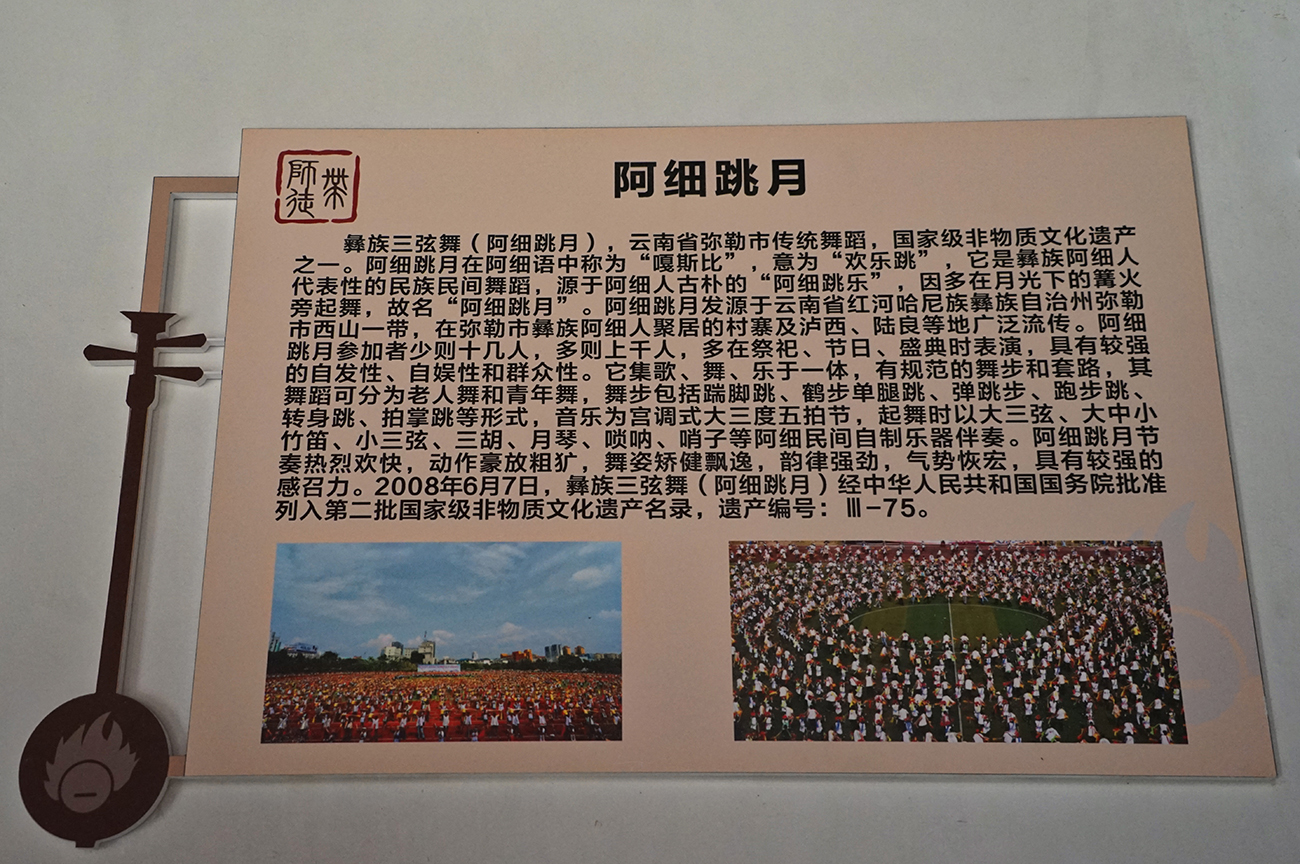 師带徒
阿细跳月
彝族三弦舞（阿细跳月），云南省弥勒市传统舞蹈，国家级非物质文化遗产
之一。阿细跳月在阿细语中称为“嘎斯比”，意为“欢乐跳”，它是彝族阿细人
代表性的民族民间舞蹈，源于阿细人古朴的“阿细跳乐”，因多在月光下的篝火
旁起舞，故名“阿细跳月”。阿细跳月发源于云南省红河哈尼族彝族自治州弥勒
市西山一带，在弥勒市彝族阿细人聚居的村寨及泸西、陆良等地广泛流传。阿细
跳月参加者少则十几人，多则上千人，多在祭祀、节日、盛典时表演，具有较强
的自发性、自娱性和群众性。它集歌、舞、乐于一体，有规范的舞步和套路，其
舞蹈可分为老人舞和青年舞，舞步包括踹脚跳、鹤步单腿跳、弹跳步、跑步跳、
转身跳、拍掌跳等形式，音乐为宫调式大三度五拍节，起舞时以大三弦、大中小
竹笛、小三弦、三胡、月琴、唢呐、哨子等阿细民间自制乐器伴奏。阿细跳月节
奏热烈欢快，动作豪放粗犷，舞姿矫健飘逸，韵律强劲，气势恢宏，具有较强的
感召力。2008年6月7日，彝族三弦舞（阿细跳月）经中华人民共和国国务院批准
列入第二批国家级非物质文化遗产名录，遗产编号：Ⅲ-75。